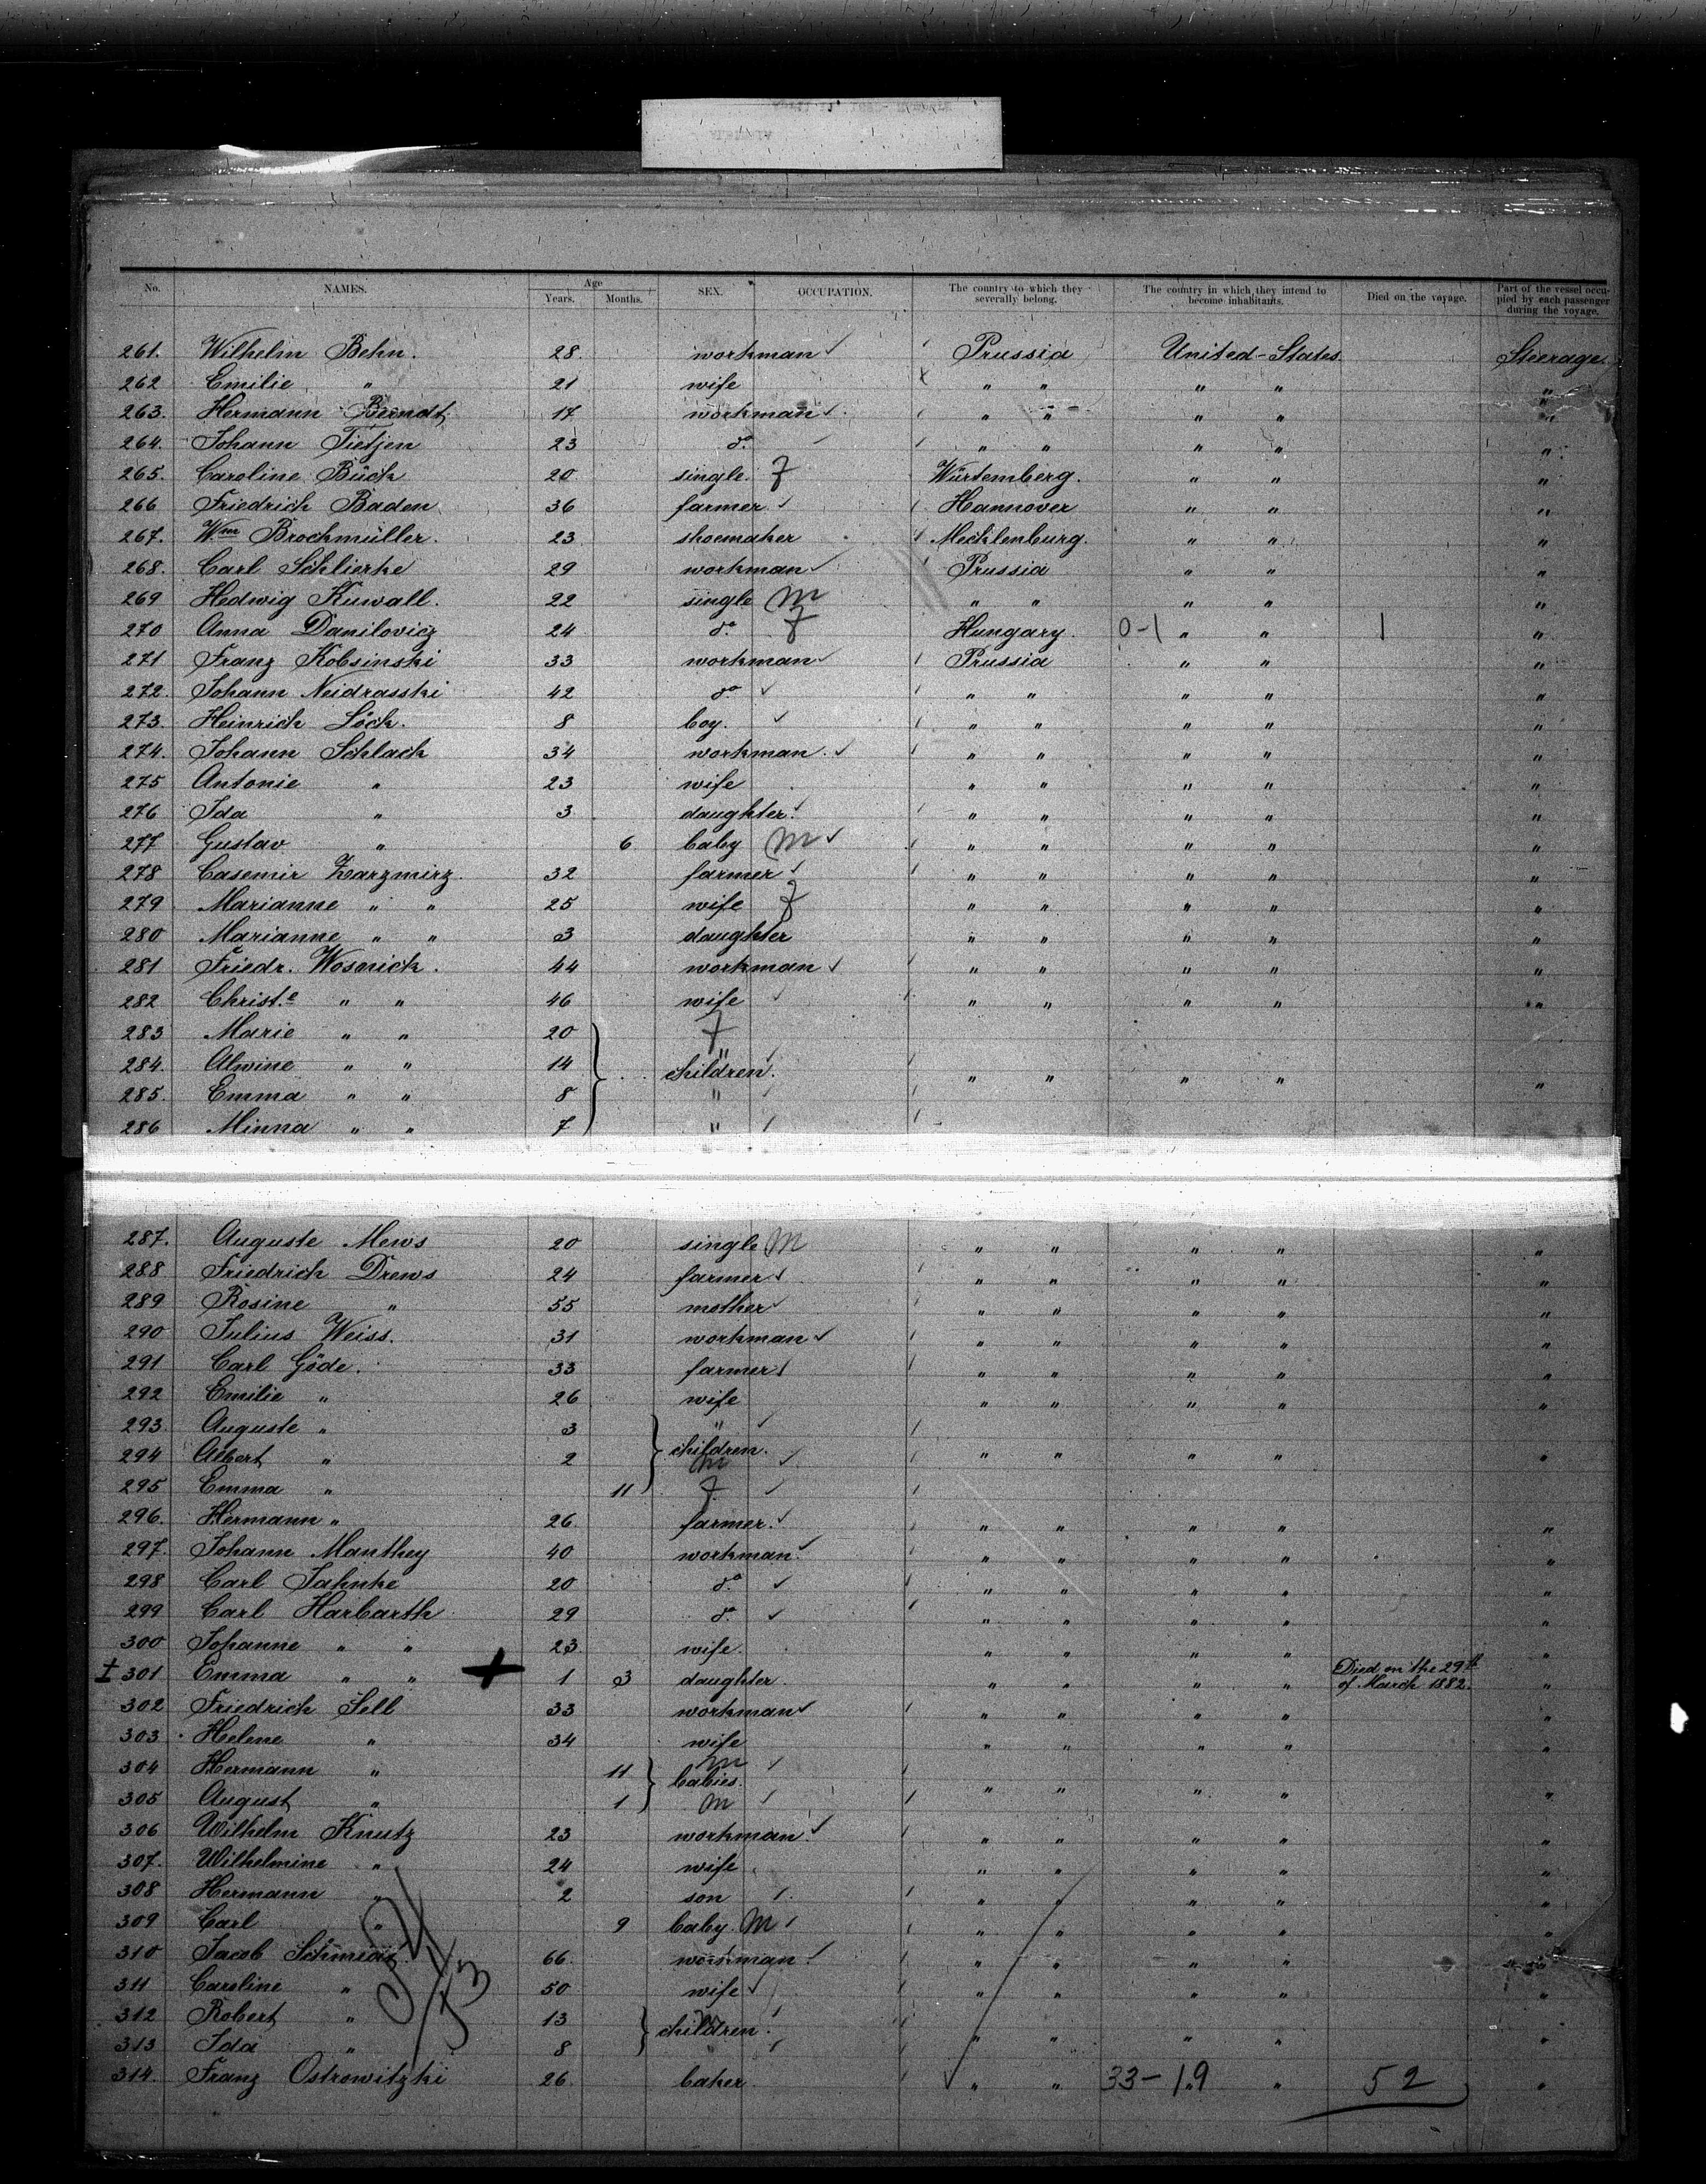 No. NAMES. Age Years. Months. SEX. OCCUPATION. The country to which they severally belong. The country in which they intend to become inhabitants. Died on the voyage. Part of the vessel occupied by each passenger during the voyage.
261. Wilhelm Behn. 28. workman Prussia United-States Steerage
262 Emilie " 21 wife " " " " "
263. Hermann Berndt 17 workman " " " " "
264. Johann Tietjen 23 do. " " " " "
265. Caroline Bück 20 single. F Würtemberg. " " "
266 Friedrich Baden 36 farmer Hannover " " "
267. Wm Brockmüller. 23 shoemaker Mecklenburg. " " "
268. Carl Schlierke 29 workman Prussia " " "
269 Hedwig Kuwall. 22 single M " " " " "
270 Anna Danilovicz 24 do. F Hungary. 0-1 " " 1 "
271 Franz Kobsinski 33 workman Prussia " " "
272. Johann Neidrasski 42 do " " " " "
273. Heinrich Löck. 8 boy. " " " " "
274. Johann Schlack 34 workman. " " " " "
275 Antonie " 23 wife " " " " "
276 Ida " 3 daughter. " " " " "
277 Gustav " 6 baby M " " " " "
278 Casemir Zarzmirz. 32 farmer " " " " "
279 Marianne " " 25 wife F " " " " "
280 Marianne " " 3 daughter " " " " "
281 Friedr. Wosnick. 44 workman " " " " "
282 Christ.e " " 46 wife " " " " "
283 Marie " " 20 F
284. Alwine " " 14 " children. " " " " "
285. Emma " " 8 "
286 Minna " " 7 "
287. Auguste Mews 20 single M " " " " "
288 Friedrich Drews 24 farmer " " " " "
289 Rosine " 55 mother " " " " "
290 Julius Weiss. 31 workman " " " " "
291 Carl Göde. 33 farmer " " " " "
292 Emilie " 26 wife " " " " "
293. Auguste " 3 "
294 Albert " 2 children. M " " " " "
295 Emma " 11 F.
296. Hermann " 26 farmer. " " " " "
297. Johann Manthey 40 workman. " " " " "
298 Carl Jahnke 20 do. " " " " "
299 Carl Harbarth 29 do. " " " " "
300 Johanne " " 23 wife. " " " " "
± 301 Emma " " + 1 3 daughter. " " " " Died on the 29th of March 1882. "
302 Friedrich Sell 33 workman " " " " "
303 Helene " 34 wife " " " " "
304 Hermann " 11 M babies. " " " " "
305 August " 1 M
306 Wilhelm Knutz 23 workman. " " " " "
307. Wilhelmine " 24 wife " " " " "
308 Hermann " 2 son " " " " "
309 Carl " 9 baby. M " " " " "
310 Jacob Schmidt. 66. workman. " " " " "
311 Caroline " 50 wife " " " " "
312 Robert " 13 children. " " " " "
313 Ida " 8
314. Franz Ostrowitzki 26 baker " " 33-19 " " 52 "